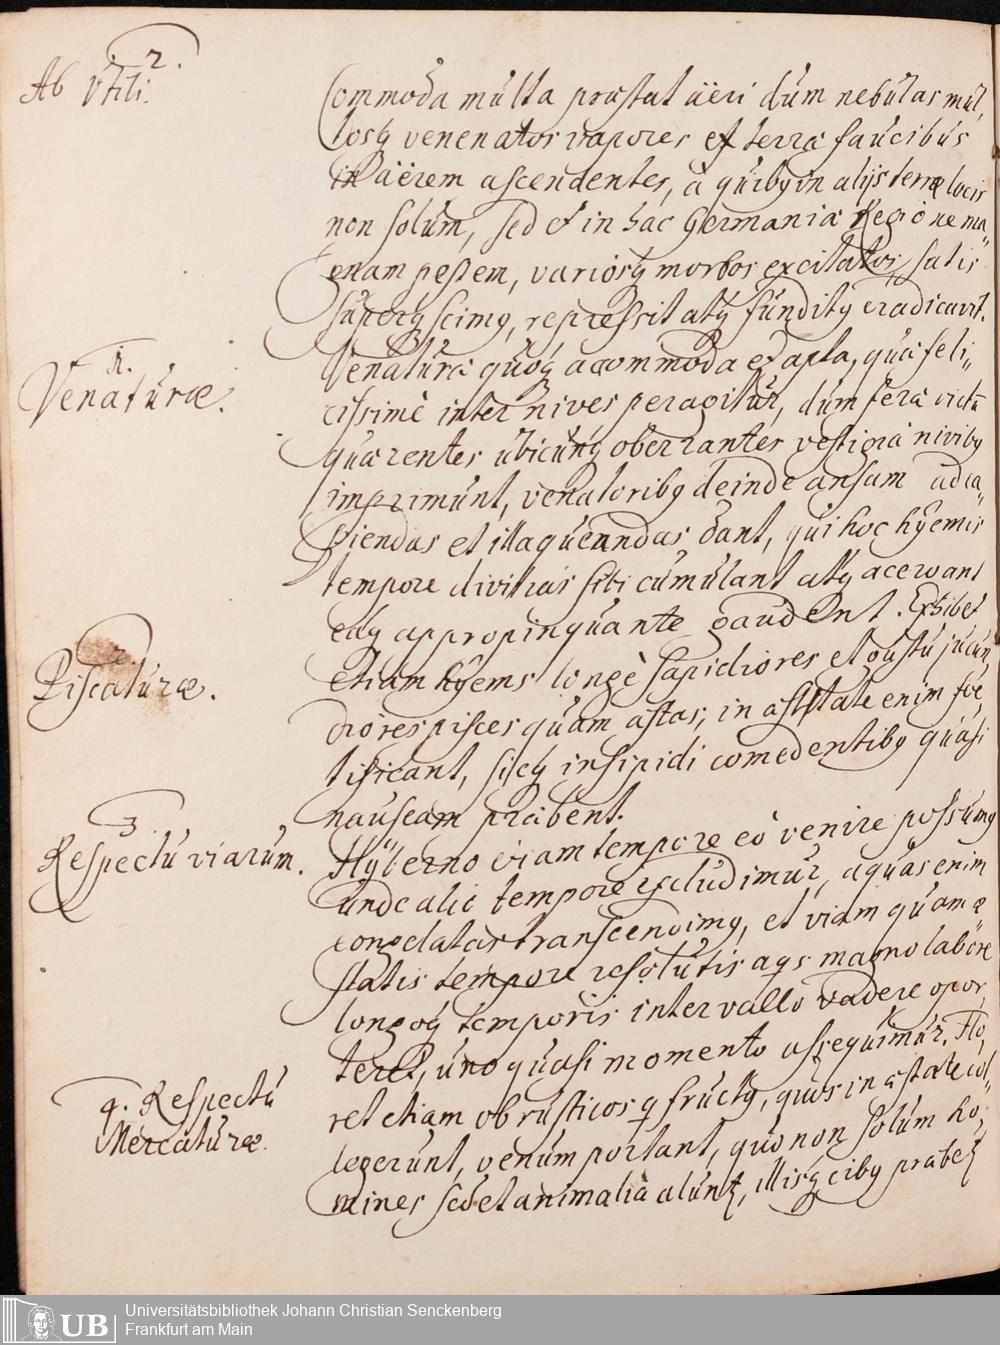 2.
Ab Utili.
Commoda multa præstat aëri dum nebulas mul,
tosq venenatos vapores ex terræ faucibus
in aërem ascendentes, à quibq in alijs terræ locis
non solum, sed et in hac Germaniæ Regione ma„
gnam pestem, variosq morbos excitatos, satis
superq scimq, repressit atq funditq eradicavit.
1.
Venaturæ.
Venaturæ quoq accommoda et apta, quæ feli„
cissimè inter nives peragitur, dum feræ victū
quærentes ubicunq oberrantes vestigia nivibq
imprimunt, venatoribq deinde ansam ad ca„
piendas et illaqueandas dant, qui hoc hyemis
tempore divitias sibi cumulant atq acervant
eaq appropinquante gaudent. Exhibet
2.
Piscaturæ.
etiam hyems longè sapidiores et gustu jucun,
diores pisces quam æstas, in æstate enim foe,
tificant, sicq insipidi comedentibq quasi
nauseam præbent.
3
Respectu viarum.
Hyberno etiam tempore eò venire possumq
unde alio tempore excludimur, aquas enim
congelatas transcendimq, et viam quam æ
statis tempore resolutis aqs magno labore
longoq temporis intervallo vadere opor,
teret, uno quasi momento assequimur. Flo,
4. Respectu
Mercaturæ.
ret etiam ob rusticos q fructq, quos in æstate col„
legerunt, venum portant, quo non solum ho,
mines sed et animalia alunt, illisq cibq præbet
Universitätsbibliothek Johann Christian Senckenberg
Frankfurt am Main
UB